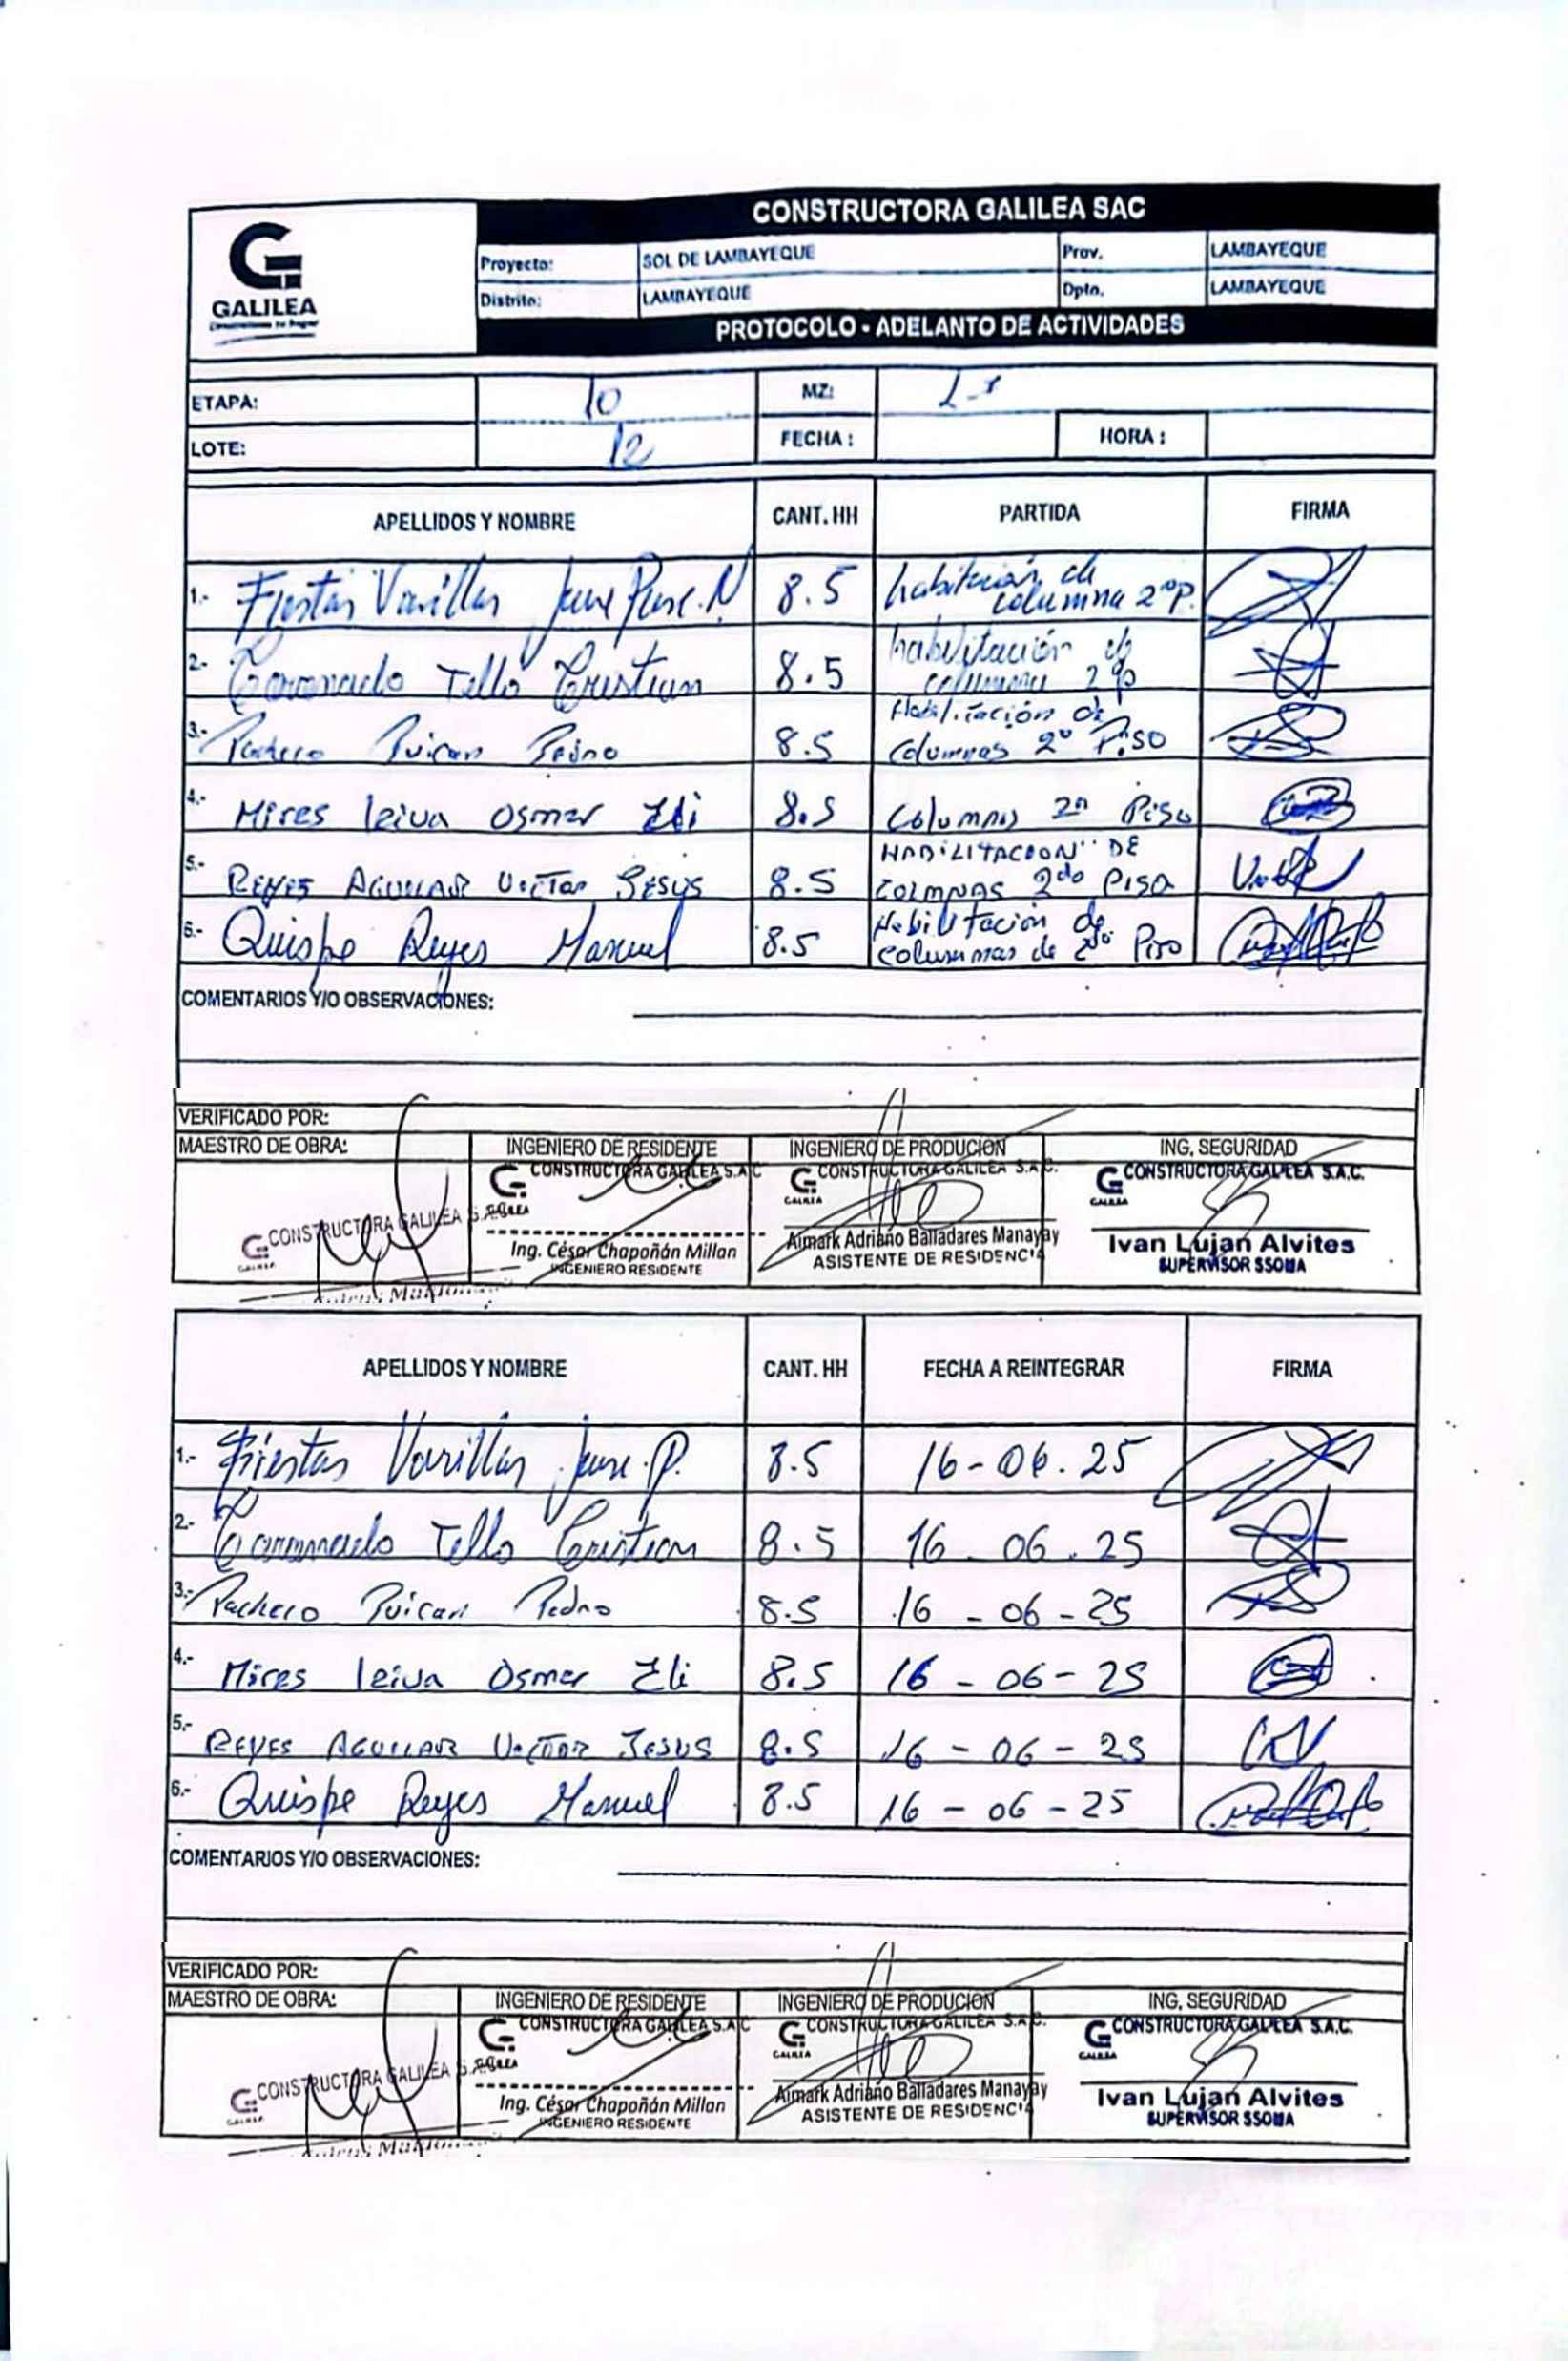 GALILEA
CONSTRUCTORA GALILEA SAC
Proyecto: SOL DE LAMBAYEQUE Prov. LAMBAYEQUE
Distrito: LAMBAYEQUE Dpto. LAMBAYEQUE
PROTOCOLO - ADELANTO DE ACTIVIDADES
ETAPA: 10 MZ:
LOTE: 12 FECHA: HORA:
APELLIDOS Y NOMBRE CANT. HH PARTIDA FIRMA
1.- Fiestas Varillas 8.5 habitación de
columna 2º P.
2- Coronado Tello Cristian 8.5 habilitación
columna
3.- Pacheco Puican Pedro 8.5 Habilitación de
columnas 2º Piso
4.- Mires leiva Osmer Eli 8.5 Columnas 2º Piso
5.- REYES AGUILAR VICTOR JESUS 8.5 HABILITACION DE
COLMNAS 2do PISO
6.- Quispe Reyes Manuel 8.5 Habilitación de
columnas de 2do Piso
COMENTARIOS Y/O OBSERVACIONES:
VERIFICADO POR:
MAESTRO DE OBRA: INGENIERO DE RESIDENTE INGENIERO DE PRODUCION ING. SEGURIDAD
CONSTRUCTORA GALILEA S.A.C CONSTRUCTORA GALILEA S.A.C. CONSTRUCTORA GALILEA S.A.C.
CONSTRUCTORA GALILEA S.A.C.
Ing. César Chapoñán Millan Aimark Adriano Balladares Manayay Ivan Lujan Alvites
INGENIERO RESIDENTE ASISTENTE DE RESIDENCIA SUPERVISOR SSOMA
APELLIDOS Y NOMBRE CANT. HH FECHA A REINTEGRAR FIRMA
1.- Fiestas Varillas 8.5 16-06.25
2.- Coronado Tello Cristian 8.5 16-06.25
3.- Pacheco Puican Pedro 8.5 16-06-25
4.- Mires leiva Osmer Eli 8.5 16-06-25
5.- REYES AGUILAR VICTOR JESUS 8.5 16-06-25
6.- Quispe Reyes Manuel 8.5 16-06-25
COMENTARIOS Y/O OBSERVACIONES:
VERIFICADO POR:
MAESTRO DE OBRA: INGENIERO DE RESIDENTE INGENIERO DE PRODUCION ING. SEGURIDAD
CONSTRUCTORA GALILEA S.A.C CONSTRUCTORA GALILEA S.A.C. CONSTRUCTORA GALILEA S.A.C.
CONSTRUCTORA GALILEA S.A.C.
Ing. César Chapoñán Millan Aimark Adriano Balladares Manayay Ivan Lujan Alvites
INGENIERO RESIDENTE ASISTENTE DE RESIDENCIA SUPERVISOR SSOMA